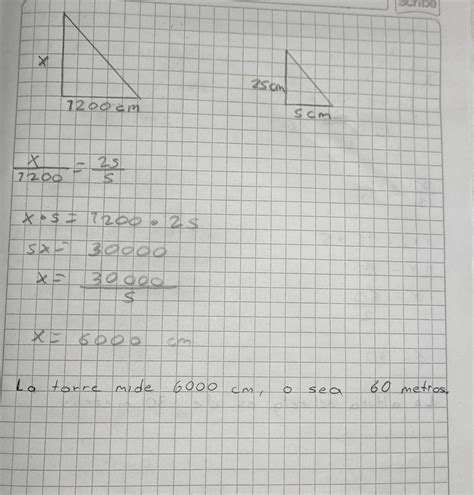 scribe
x
25cm
1200cm
5cm
x/1200 = 25/5
x•5= 1200•25
5x= 30000
x= 30000/5
x= 6000 cm
La torre mide 6000 cm, o sea 60 metros.